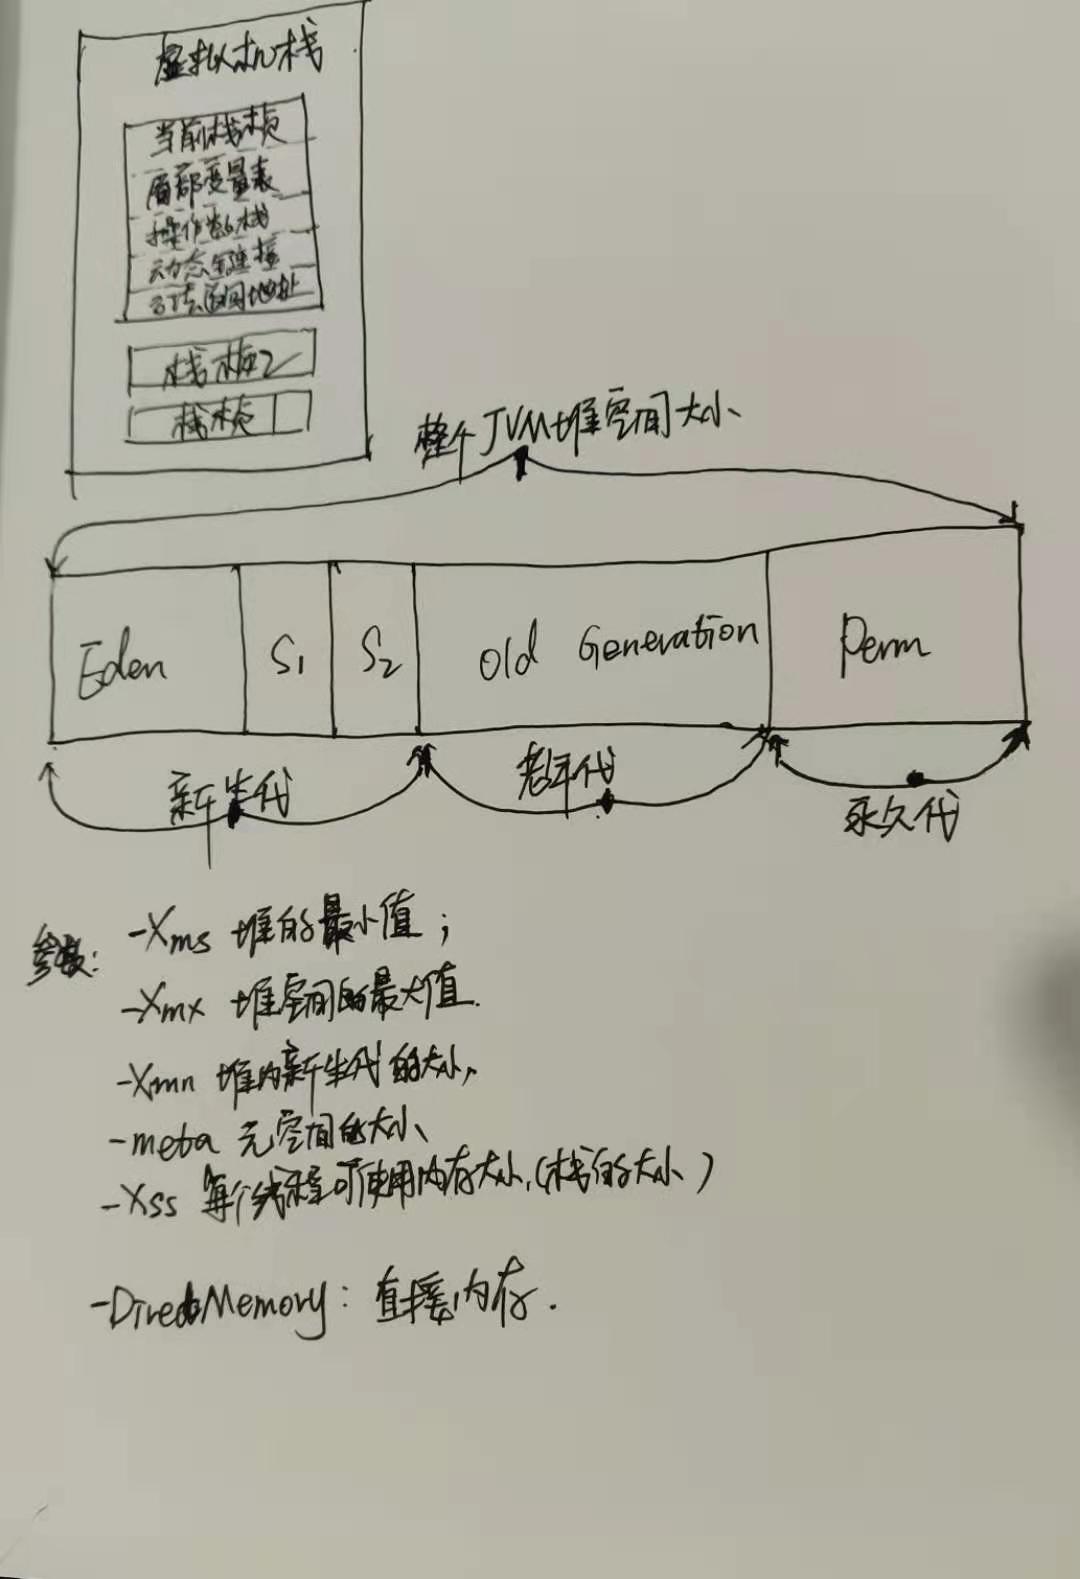 虚拟机栈
当前栈桢
局部变量表
操作数栈
动态链接
方法返回地址
栈桢2
栈桢1
整个JVM堆空间大小
Eden S1 S2 Old Generation Perm
新生代 老年代 永久代
参数: -Xms 堆的最小值;
-Xmx 堆空间的最大值.
-Xmn 堆内新生代的大小,
-meta 元空间的大小、
-Xss 每个线程可使用内存大小,(栈的大小)
-DirectMemory: 直接内存.